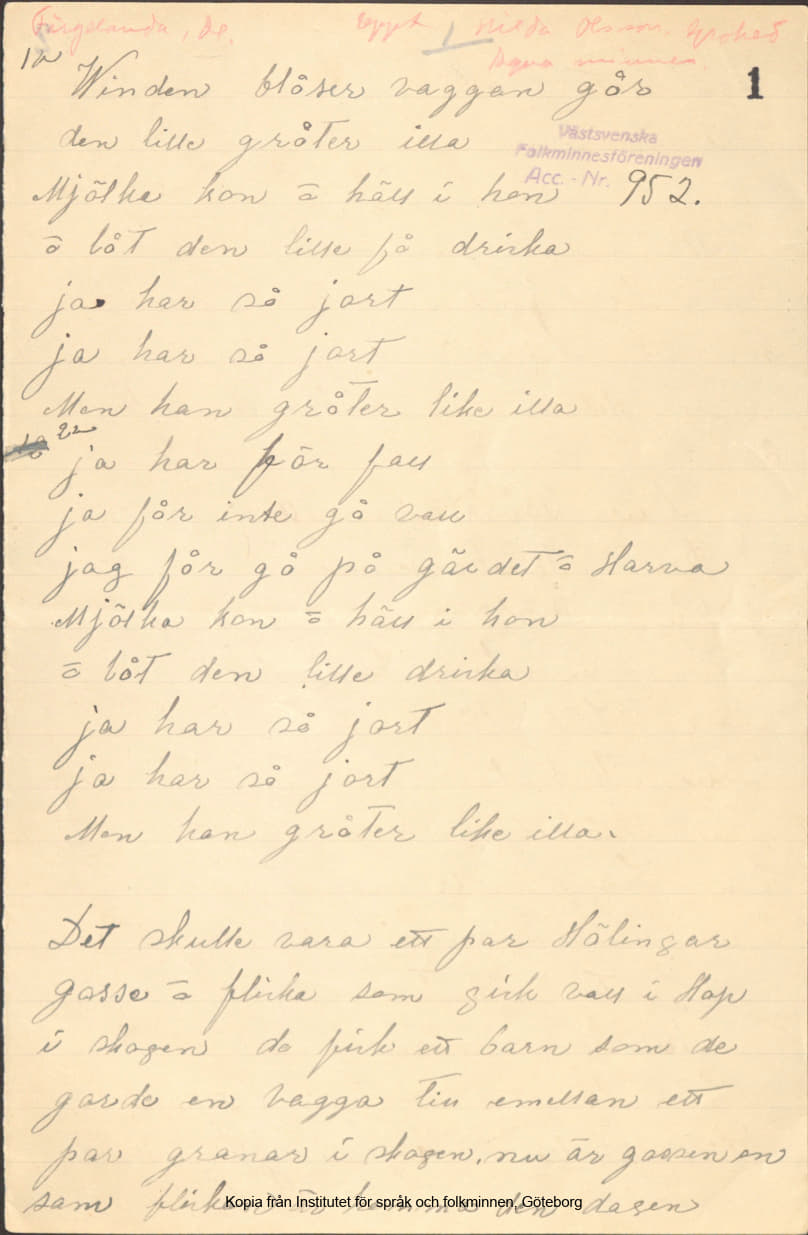 Färgelanda, Dl. Uppt. Hilda Olsson,
Egna minnen.
1
Västsvenska
Folkminnesföreningen
Acc. - Nr. 952.
Winden blåser vaggan går
den lille gråter illa
Mjölka kon ā häll i hon
ā låt den lille få dricka
ja har så jort
ja har så jort
Men han gråter like illa
ja har för fall
ja får inte gå vall
jag får gå på gärdet ā Harva
Mjölka kon ā häll i hon
ā låt den lille dricka
ja har så jort
ja har så jort
Men han gråter like illa.
Det skulle vara ett par Hölingar
gosse ā flicka som gick vall i Hop
i skogen de fick ett barn som de
gorde en vagga till emellan ett
par granar i skogen. nu är gossen en
som flickan är hemma den dagen
Kopia från Institutet för språk och folkminnen, Göteborg